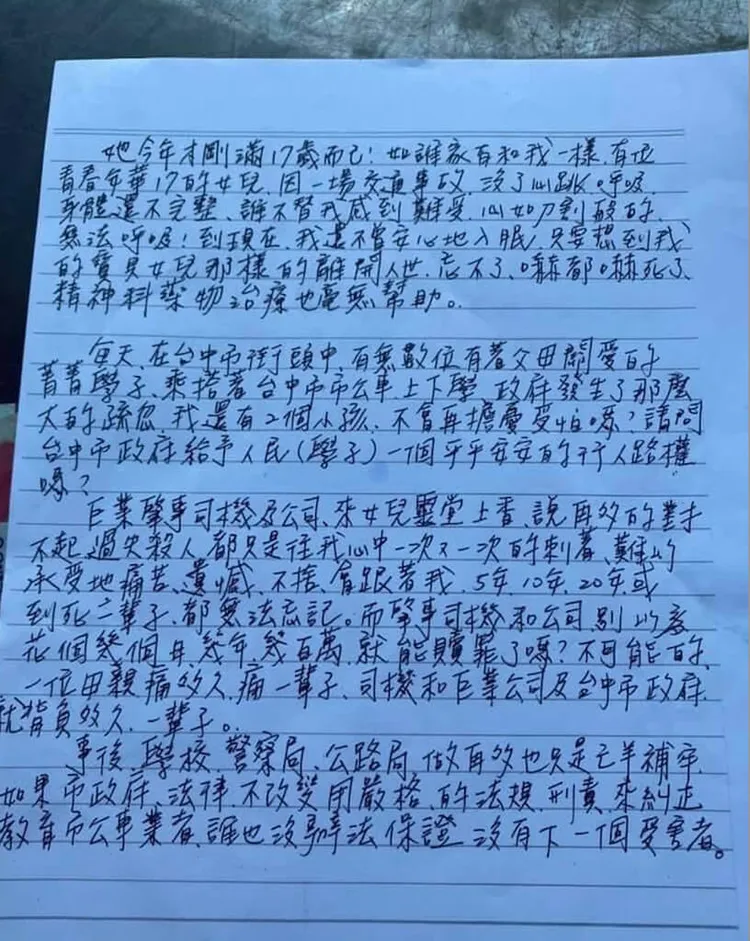 她今年才剛滿17歲而已!如誰家有和我一樣.有位
青春年華17的女兒.因一場交通事故.沒了心跳.呼吸.
身體還不完整、誰不替我感到難受.心如刀割般的.
無法呼吸!到現在.我還不曾安心地入眠.只要想到我
的寶貝女兒那樣的離開人世.忘不了.嚇都嚇死了.
精神科藥物治療也毫無幫助。
每天.在台中市街頭中.有無數位有著父母關愛的
菁菁學子.乘搭著台中市市公車上下學.政府發生了那麼
大的疏忽.我還有2個小孩.不會再擔憂受怕嗎?請問
台中市政府給予人民(學子)一個平平安安的行人路權
嗎?
巨業肇事司機及公司、來女兒靈堂上香、說再多的對
不起.過失殺人.都只是往我心中一次又一次的刺著、難以
承受地痛苦、遺憾、不捨、會跟著我.5年.10年.20年.或
到死一輩子.都無法忘記。而肇事司機和公司.別以為
花個幾個月、幾年、幾百萬.就能贖罪了嗎?不可能的、
一位母親痛多久.痛一輩子、司機和巨業公司及台中市政府.
就背負多久.一輩子。
事後、學校、警察局、公路局.做再多也只是亡羊補牢.
如果市政府、法律.不改變用嚴格、的法規.刑責.來糾正
教育市公車業者.誰也沒辦法保證.沒有下一個受害者。